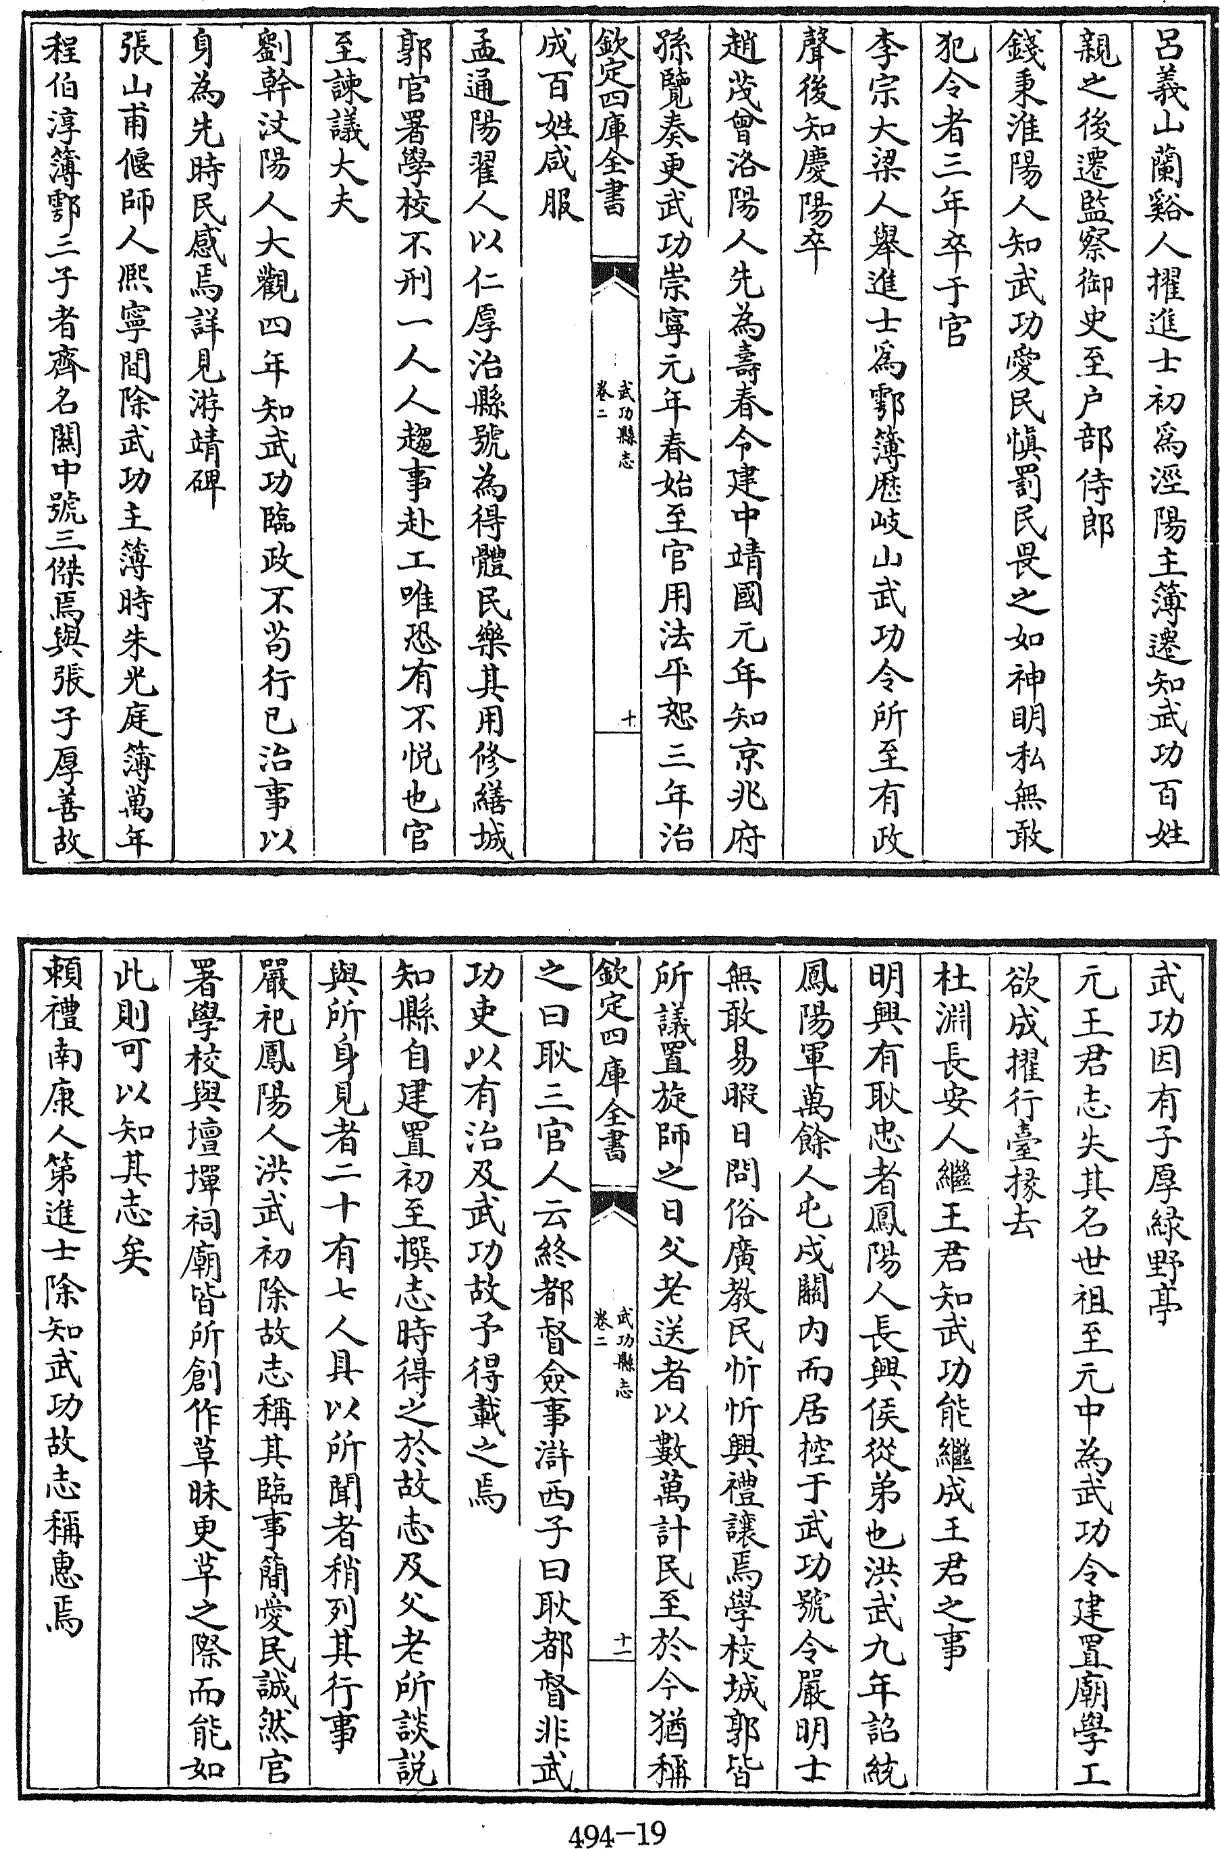 呂義山蘭谿人擢進士初爲涇陽主簿遷知武功百姓
親之後遷監察御史至户部侍郎
錢秉淮陽人知武功愛民慎罰民畏之如神明私無敢
犯令者三年卒于官
李宗大梁人舉進士爲鄠簿歷岐山武功令所至有政
聲後知慶陽卒
趙茂曾洛陽人先為壽春令建中靖國元年知京兆府
孫覽奏更武功崇寧元年春始至官用法平恕三年治
欽定四庫全書
武功縣志
卷二
十
成百姓咸服
孟通陽翟人以仁厚治縣號為得體民樂其用修繕城
郭官署學校不刑一人人趨事赴工唯恐有不悅也官
至諫議大夫
劉幹汶陽人大觀四年知武功臨政不茍行已治事以
身為先時民感焉詳見游靖碑
張山甫偃師人熙寧間除武功主簿時朱光庭簿萬年
程伯淳簿鄠二子者齊名關中號三傑焉與張子厚善故
武功因有子厚緑野亭
元王君志失其名世祖至元中為武功令建置廟學工
欲成擢行臺掾去
杜淵長安人繼王君知武功能繼成王君之事
明興有耿忠者鳳陽人長興侯從弟也洪武九年詔統
鳳陽軍萬餘人屯戍關内而居控于武功號令嚴明士
無敢易暇日問俗廣教民忻忻興禮讓焉學校城郭皆
所議置旋師之日父老送者以數萬計民至於今猶稱
欽定四庫全書
武功縣志
卷二
十一
之曰耿三官人云終都督僉事滸西子曰耿都督非武
功吏以有治及武功故予得載之焉
知縣自建置初至撰志時得之於故志及父老所談説
與所身見者二十有七人具以所聞者稍列其行事
嚴祀鳳陽人洪武初除故志稱其臨事簡愛民誠然官
署學校與壇墠祠廟皆所創作草昧更革之際而能如
此則可以知其志矣
賴禮南康人第進士除知武功故志稱惠焉
494-19